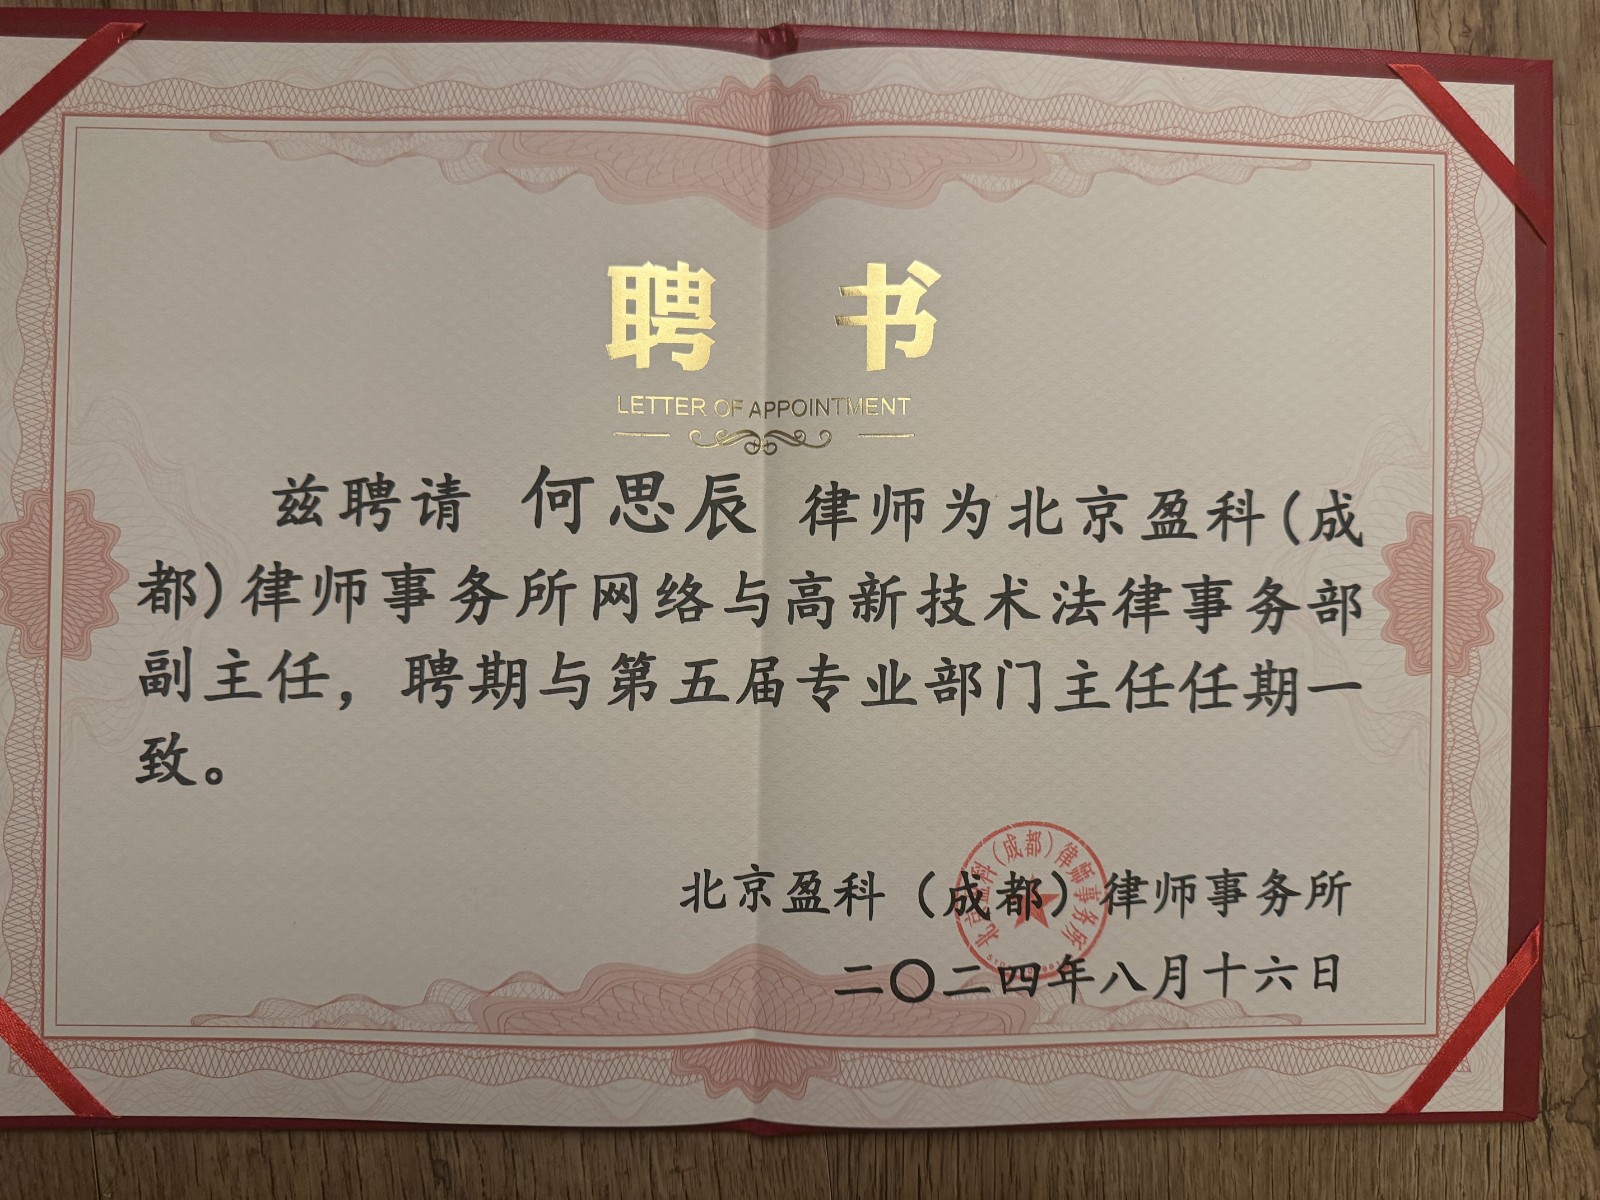 聘 书
LETTER OF APPOINTMENT
兹聘请 何思辰 律师为北京盈科(成
都)律师事务所网络与高新技术法律事务部
副主任，聘期与第五届专业部门主任任期一
致。
北京盈科（成都）律师事务所
北京盈科（成都）律师事务所
二〇二四年八月十六日